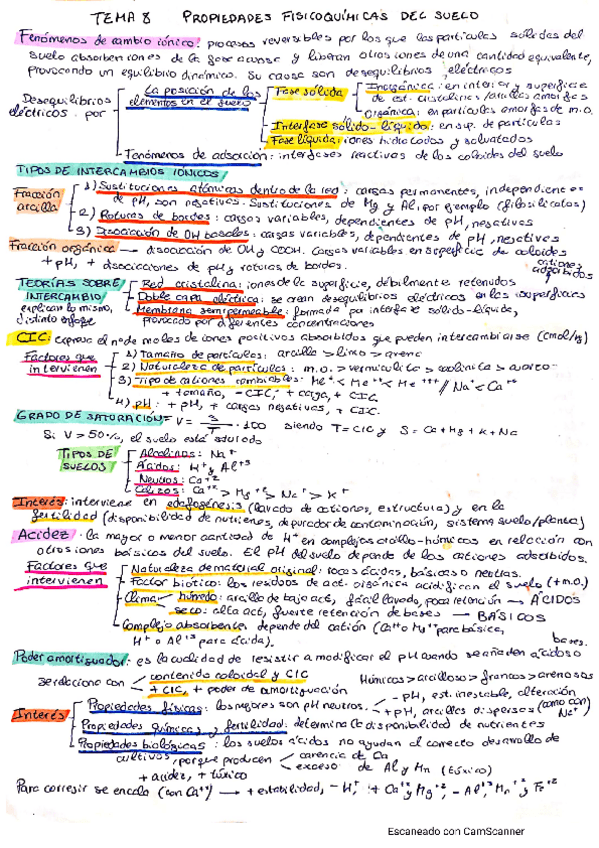 TEMA 8 PROPIEDADES FISICOQUÍMICAS DEL SUELO
Fenómenos de cambio iónico: procesos reversibles por los que las partículas sólidas del
suelo absorben iones de la fase acuosa y liberan otros iones de una cantidad equivalente,
provocando un equilibrio dinámico. Su causa son desequilibrios eléctricos
Desequilibrios eléctricos por
La posición de los elementos en el suelo
Fase sólida
Inorgánica: en interior y superficie
de est. cristalinas/arcillas amorfas
Orgánica: en partículas amorfas de m.o.
Interfase sólido-líquido: en sup. de partículas
Fase líquida: iones hidratados y solvatados
Fenómenos de adsorción: interfases reactivas de los coloides del suelo
TIPOS DE INTERCAMBIOS IÓNICOS
Fracción arcilla
1) Sustituciones atómicas dentro de la red: cargas permanentes, independientes
de pH, son negativas. Sustituciones de Mg y Al, por ejemplo (filosilicatos)
2) Roturas de bordes: cargas variables, dependientes de pH, negativas
3) Disociación de OH basales: cargas variables, dependientes de pH, negativas
Fracción orgánica — disociación de OH y COOH. Cargas variables en superficie de coloides
+ pH, + disociaciones de pH y roturas de bordes.
cationes adsorbidos
TEORÍAS SOBRE INTERCAMBIO
explican lo mismo, distinto enfoque
Red cristalina: iones de la superficie, débilmente retenidos
Doble capa eléctrica: se crean desequilibrios eléctricos en las superficies
Membrana semipermeable: formada por interfase sólido-líquida,
provocado por diferentes concentraciones
CIC: expresa el nº de moles de iones positivos absorbidos que pueden intercambiarse (cmol/kg)
Factores que intervienen
1) Tamaño de partículas: arcilla > limo > arena
2) Naturaleza de partículas: m.o. > vermiculita > caolinita > cuarzo
3) Tipo de cationes cambiables: Me+ < Me++ < Me+++ // Na+ < Ca++
+ tamaño, - CIC; + carga, + CIC
4) pH: + pH, + cargas negativas, + CIC.
GRADO DE SATURACIÓN = V = S/T · 100 siendo T = CIC y S = Ca + Mg + K + Na
Si V > 50%, el suelo está saturado
TIPOS DE SUELOS
Alcalinos: Na+
Ácidos: H+ y Al+3
Neutros: Ca+2
Calizos: Ca+2 > Mg+2 > Na+ > K+
Interés: interviene en edafogénesis (lavado de cationes, estructura) y en la
fertilidad (disponibilidad de nutrientes, depurador de contaminación, sistema suelo/planta)
Acidez: la mayor o menor cantidad de H+ en complejos arcillo-húmicos en relación con
otros iones básicos del suelo. El pH del suelo depende de los cationes adsorbidos.
Factores que intervienen
Naturaleza de material original: rocas ácidas, básicas o neutras.
Factor biótico: los residuos de act. orgánica acidifican el suelo (+ m.o.)
Clima
húmedo: arcillas de bajo act, fácil lavado, poca retención → ÁCIDOS
seco: alta act, fuerte retención de bases → BÁSICOS
Complejo absorbente: depende del catión (Ca++ o Mg++ para básica,
H+ o Al+3 para ácida).
Poder amortiguador: es la cualidad de resistir a modificar el pH cuando se añaden ácidos o
bases.
se relaciona con
contenido coloidal y CIC
+ CIC, + poder de amortiguación
Húmicos > arcillosos > francos > arenosos
Interés
Propiedades físicas: los mejores son pH neutros.
- pH, est. inestable, alteración
+ pH, arcillas dispersas (como con Na+)
Propiedades químicas y fertilidad: determina la disponibilidad de nutrientes
Propiedades biológicas: los suelos ácidos no ayudan al correcto desarrollo de
cultivos, porque producen
carencia de Ca
exceso de Al y Mn (tóxico)
+ acidez, + tóxico
Para corregir se encala (con Ca++) → + estabilidad, - H+, + Ca+2 y Mg+2, - Al+3, Mn+2 y Fe+2
Escaneado con CamScanner